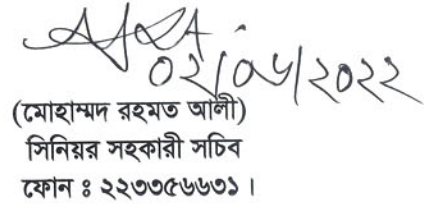 ০২/০৬/২০২২
(মোহাম্মদ রহমত আলী)
সিনিয়র সহকারী সচিব
ফোন ঃ ২২৩৩৫৬৬৩১ ।